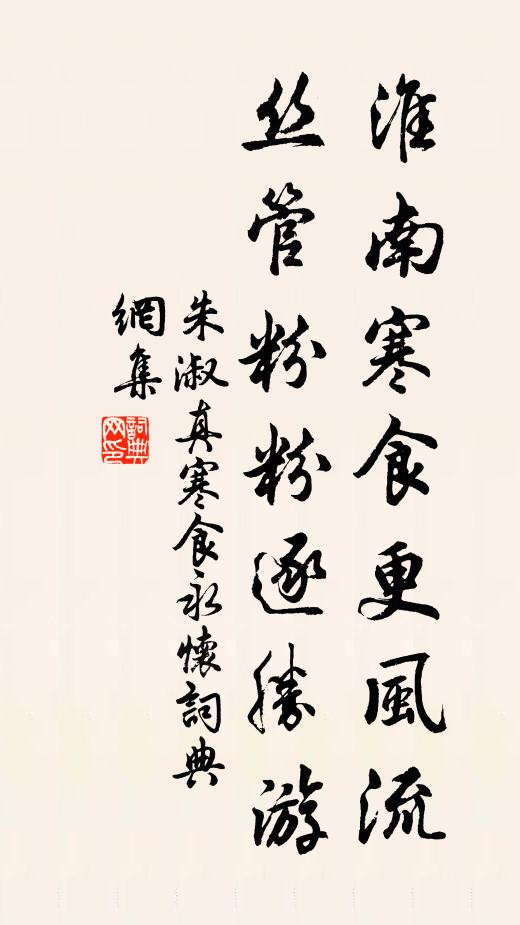 淮南寒食更風流
丝管粉粉逐勝游
朱淑真寒食永懷詞典
網集
詞典网印